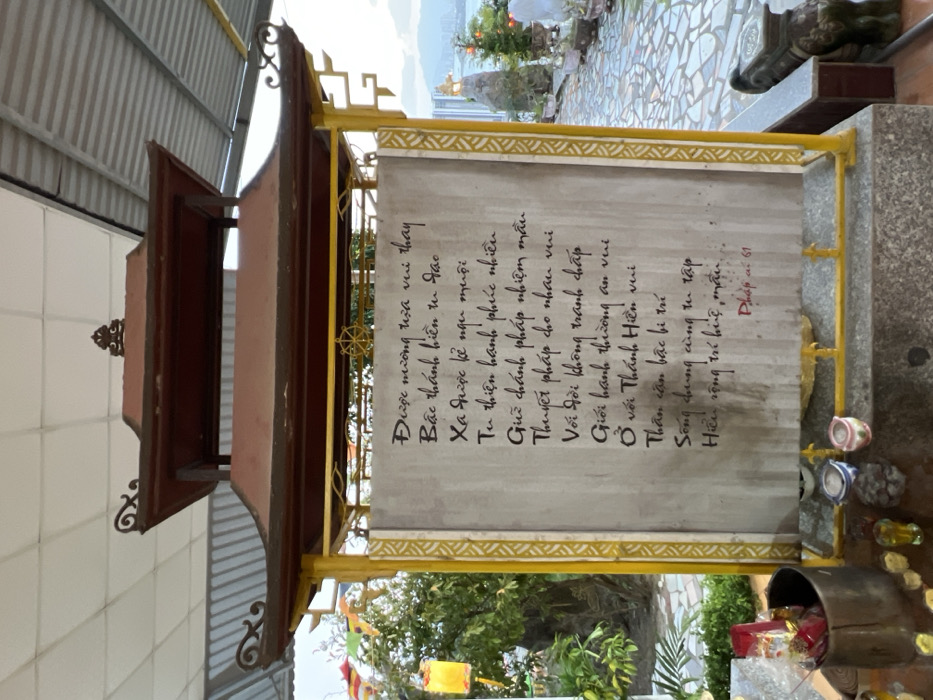 Được nương tựa vui thay
Bậc thánh hiền tu đạo
Xa được kẻ ngu muội
Tu thiện hành phúc nhiều
Giữ chánh pháp nhiệm mầu
Thuyết pháp cho nhau vui
Với đời không tranh chấp
Giới hạnh thường an vui
Ở với Thánh Hiền vui
Thân cận bậc bi trí
Sống chung cùng tu tập
Hiểu rộng trí huệ mầu
Pháp cú 61